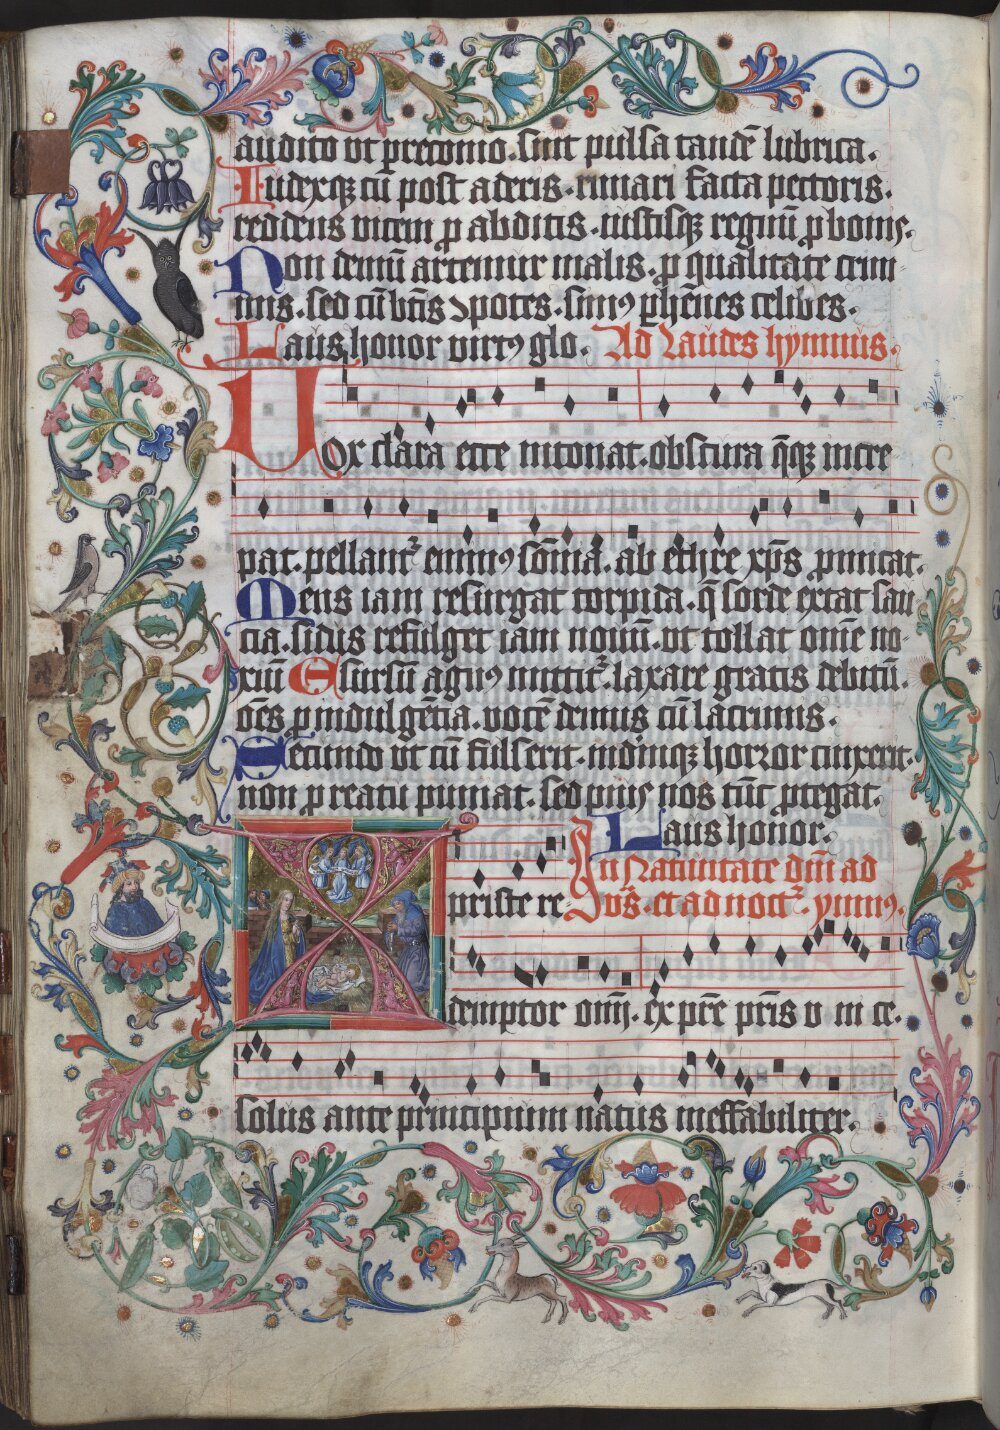 audito ut p̲reconio. sint pulsa tande̅ lubrica.
Iudexqꝫ cu̅ post aderis. rimari facta pectoris.
reddens vicem p̲ abditis. iustisqꝫ regnu̅ p̲ bonis.
Non demu̅ artemur malis. p̲ qualitate crimi
nis. sed cu̅ bt̅is ꝯpotes. simꝰ p̲hen̅es celibes.
Laus honor virtꝰ glo. Ad Laudes hymnus.
Vox clara ecce intonat. obscura q̅qꝫ incre
pat. pellant᷑ eminꝰ so̅nia. ab ethre xp̅s p̲micat.
Mens iam resurgat torpida. q̅ sorde extat sau
cia. sidus refulget iam novu̅. ut tollat om̅e no
xiu̅ E sursu̅ agnꝰ mittit᷑. laxare gratis debitu̅.
om̅s p̲ indulge̅tia. voce̅ demus cu̅ lacrimis.
Secundo ut cu̅ fulserit. mu̅du̅qꝫ horror cinxerit.
non p̲ reatu puniat. sed pius nos tu̅c p̲tegat.
Laus honor.
In Nativitate dn̅i ad
vs̅. et ad noct᷑. ymnꝰ.
Xpriste re
demptor om̅i. ex pr̅e pr̅is v ni ce.
solus ante principium natus ineffabiliter.